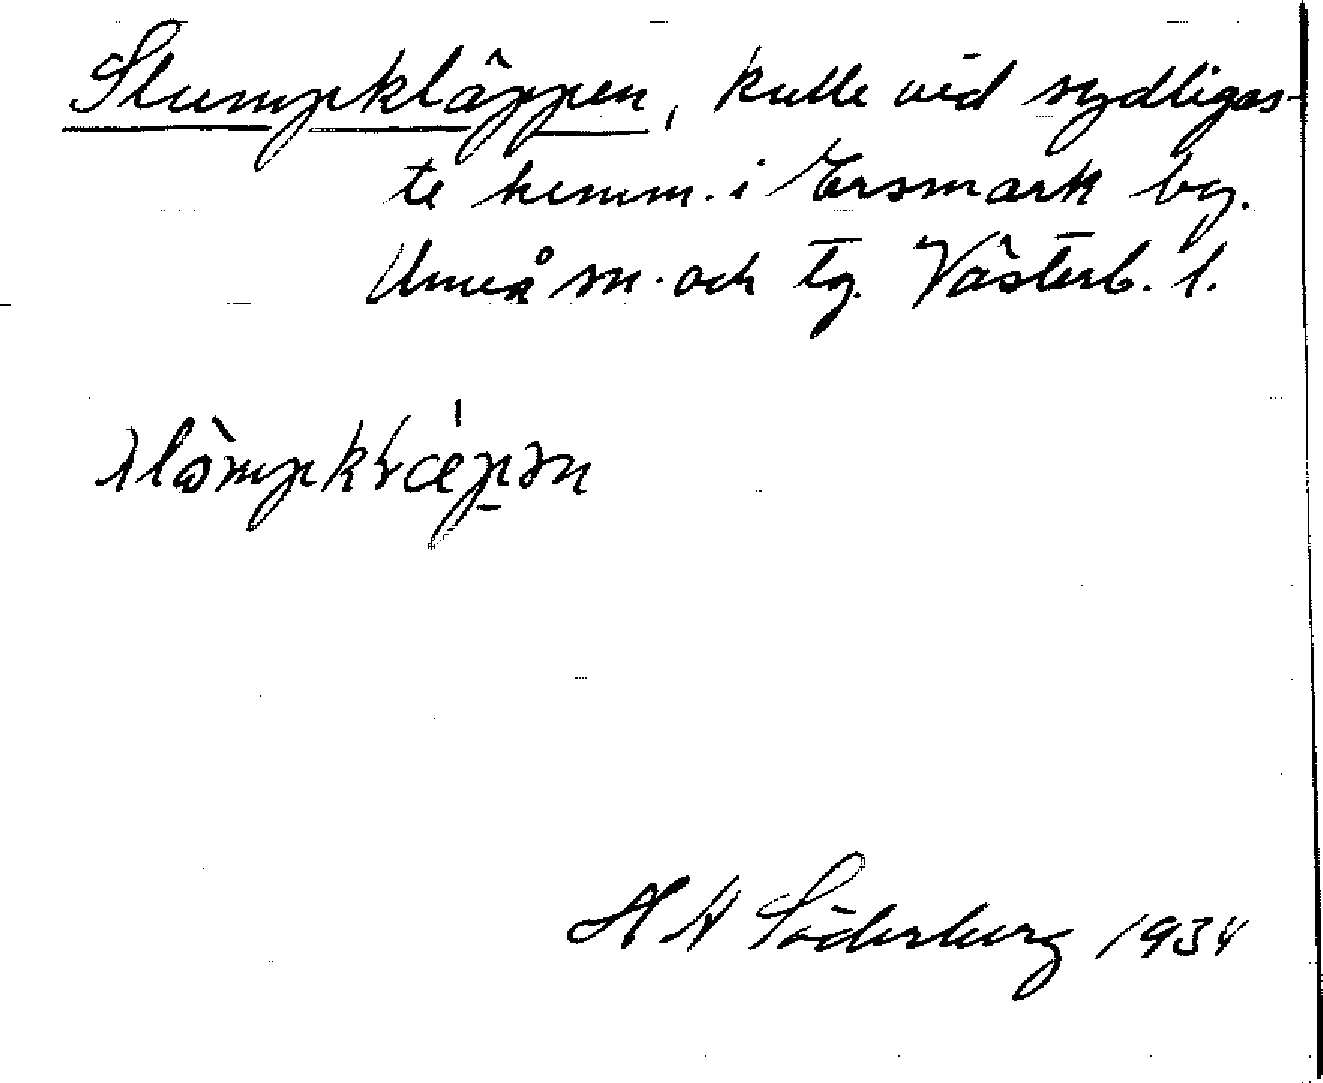 Slumpkläppen, kulle vid sydligas-
te hemm. i Ersmark by.
Umeå sn. och tg. Västerb. l.
H A Söderberg 1934